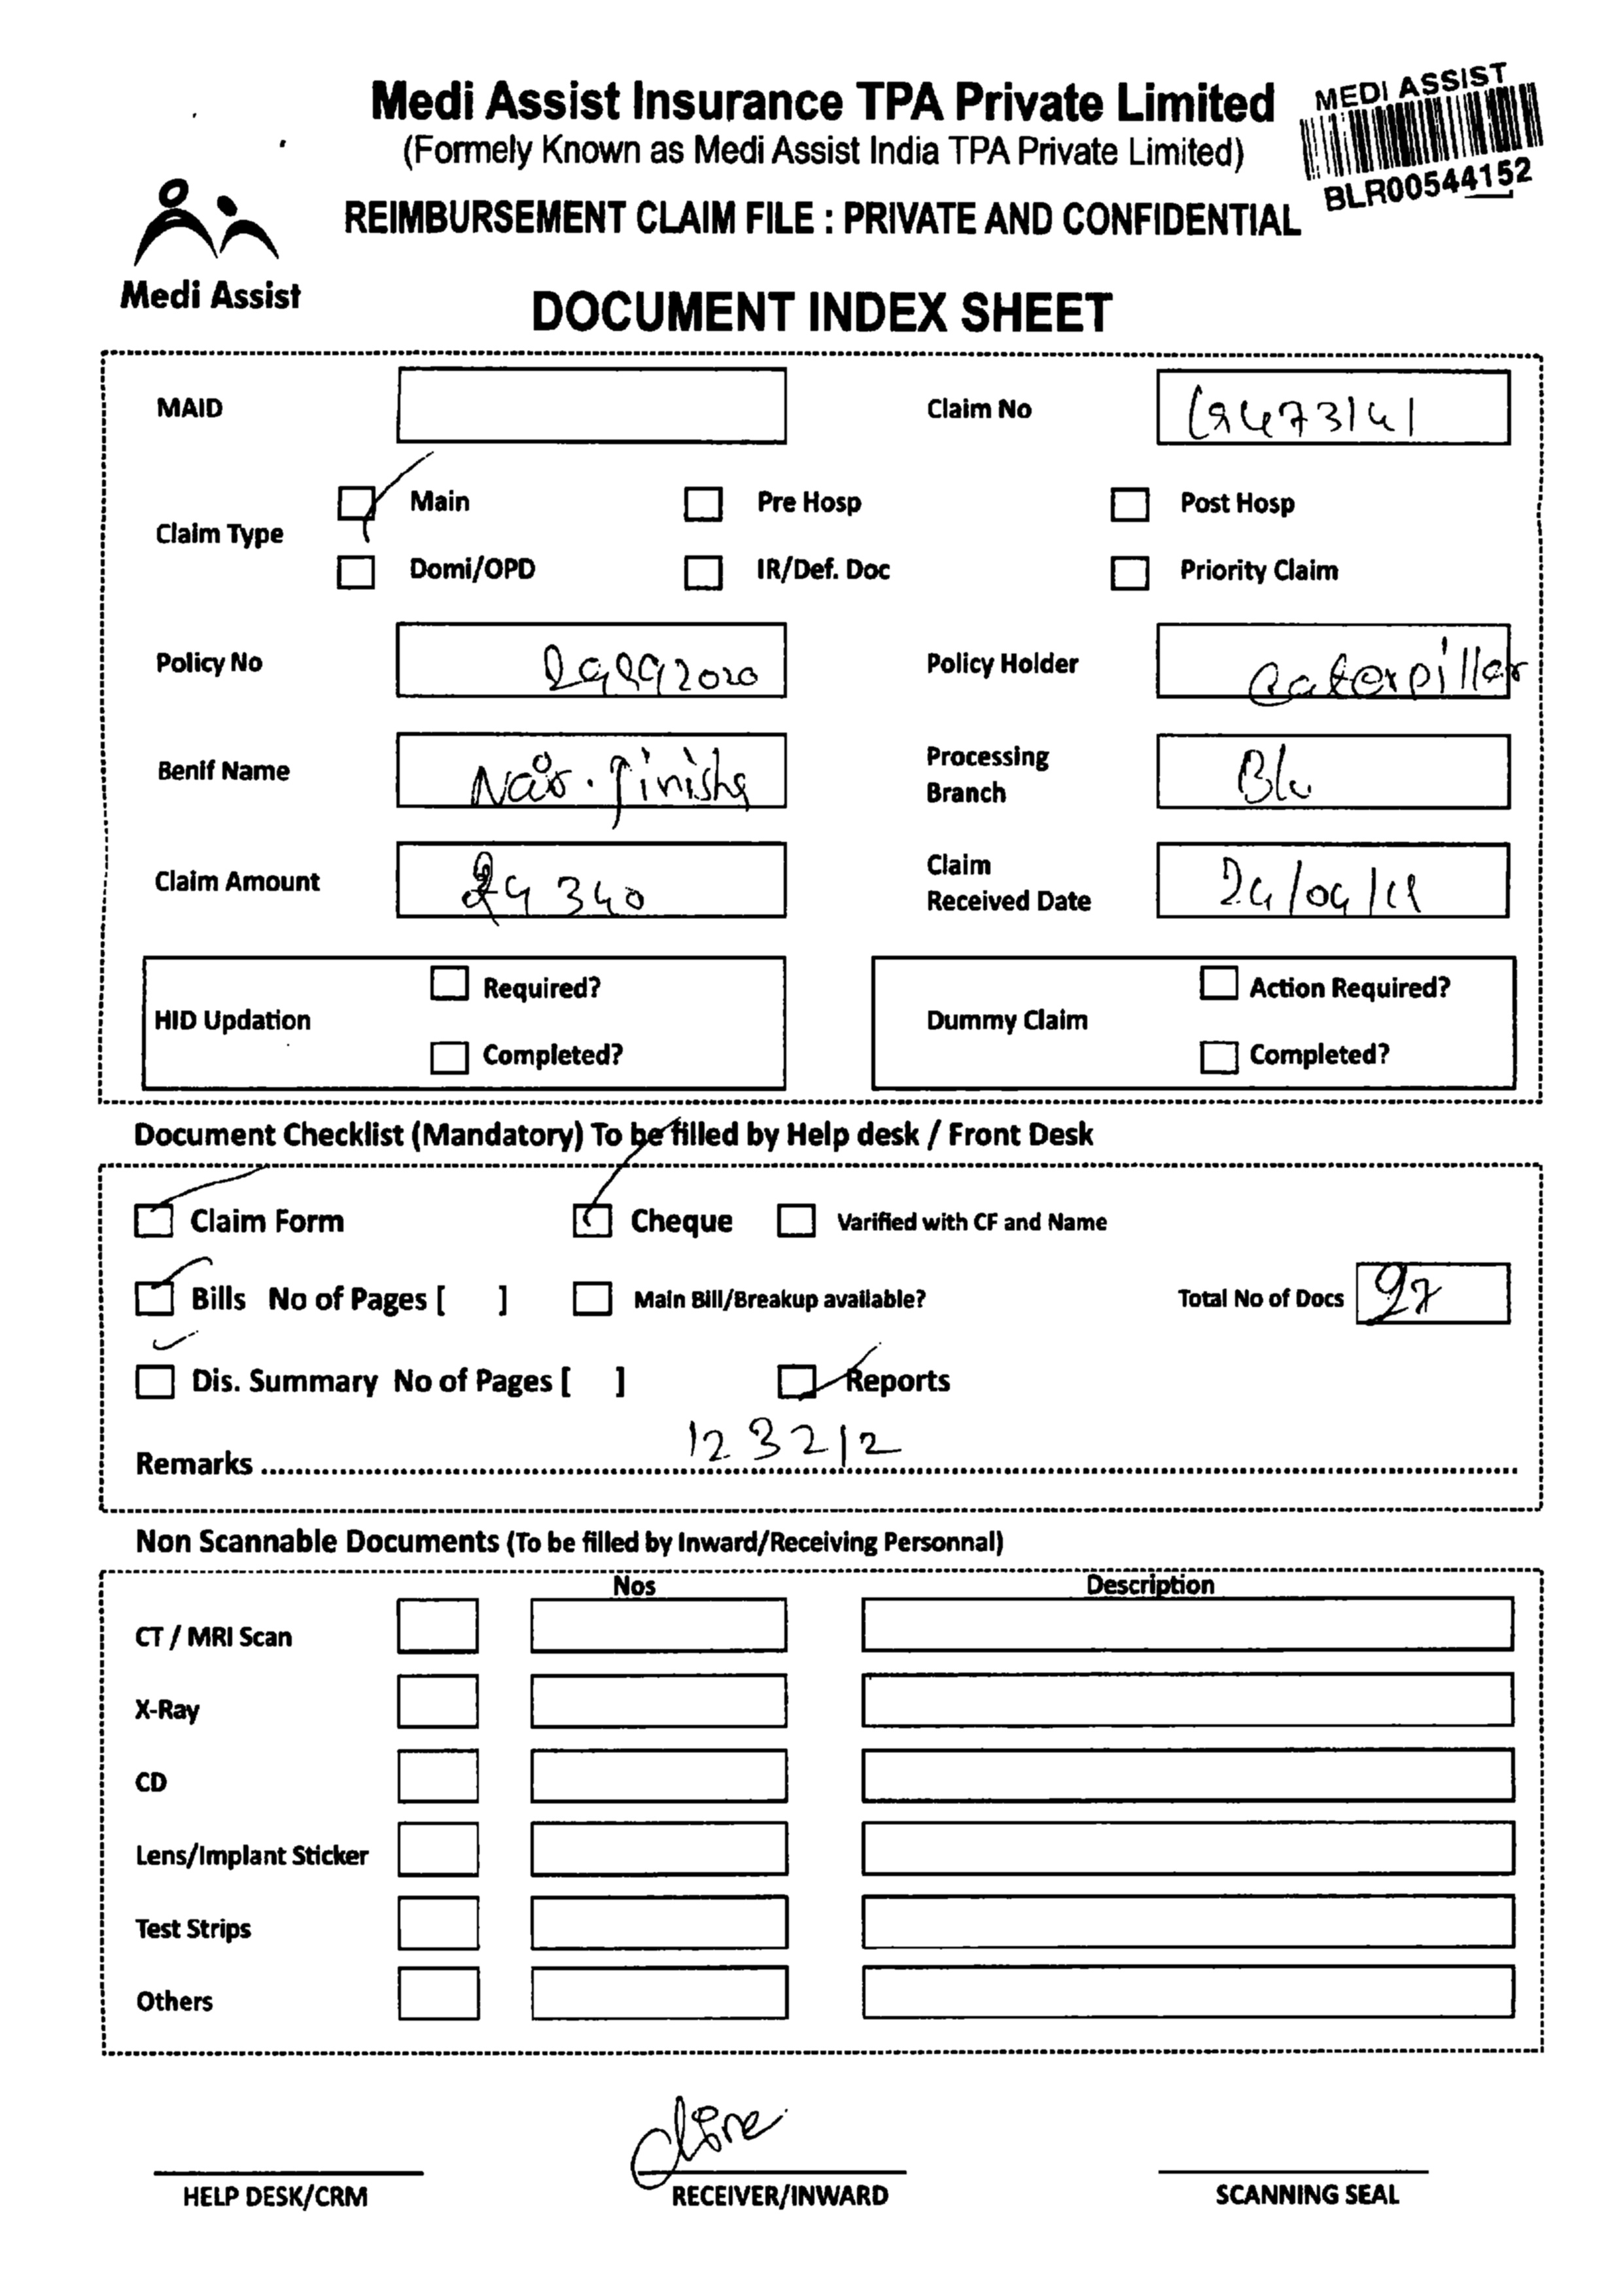 Medi Assist Insurance TPA Private Limited
(Formely Known as Medi Assist India TPA Private Limited)
MEDI ASSIST
BLR00544152
REIMBURSEMENT CLAIM FILE : PRIVATE AND CONFIDENTIAL
Medi Assist
DOCUMENT INDEX SHEET
MAID Claim No
Claim Type
Main Pre Hosp Post Hosp
Domi/OPD IR/Def. Doc Priority Claim
Policy No Policy Holder Caterpillar
Benif Name Processing Branch
Claim Amount Claim Received Date
HID Updation Required? Completed?
Dummy Claim Action Required? Completed?
Document Checklist (Mandatory) To be filled by Help desk / Front Desk
Claim Form Cheque Varified with CF and Name
Bills No of Pages [ ] Main Bill/Breakup available? Total No of Docs
Dis. Summary No of Pages [ ] Reports
Remarks 123212
Non Scannable Documents (To be filled by Inward/Receiving Personnal)
Nos Description
CT / MRI Scan
X-Ray
CD
Lens/Implant Sticker
Test Strips
Others
HELP DESK/CRM RECEIVER/INWARD SCANNING SEAL